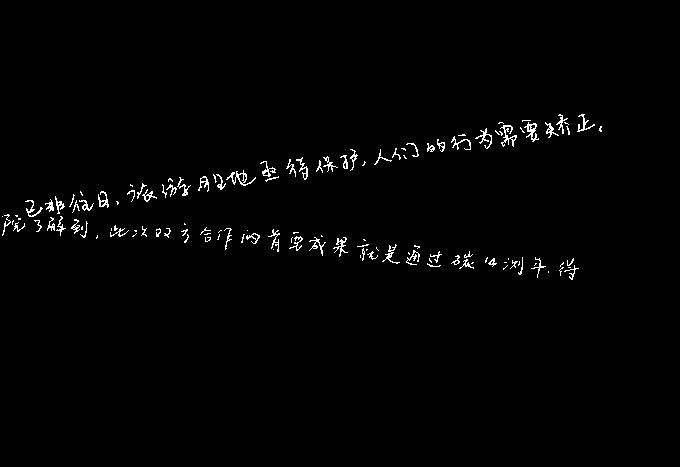 已非往日，该修身胜地亟待保护，人们的行为需要矫正。
院了解到，此次双方合作的首要成果就是通过碳14测年，得